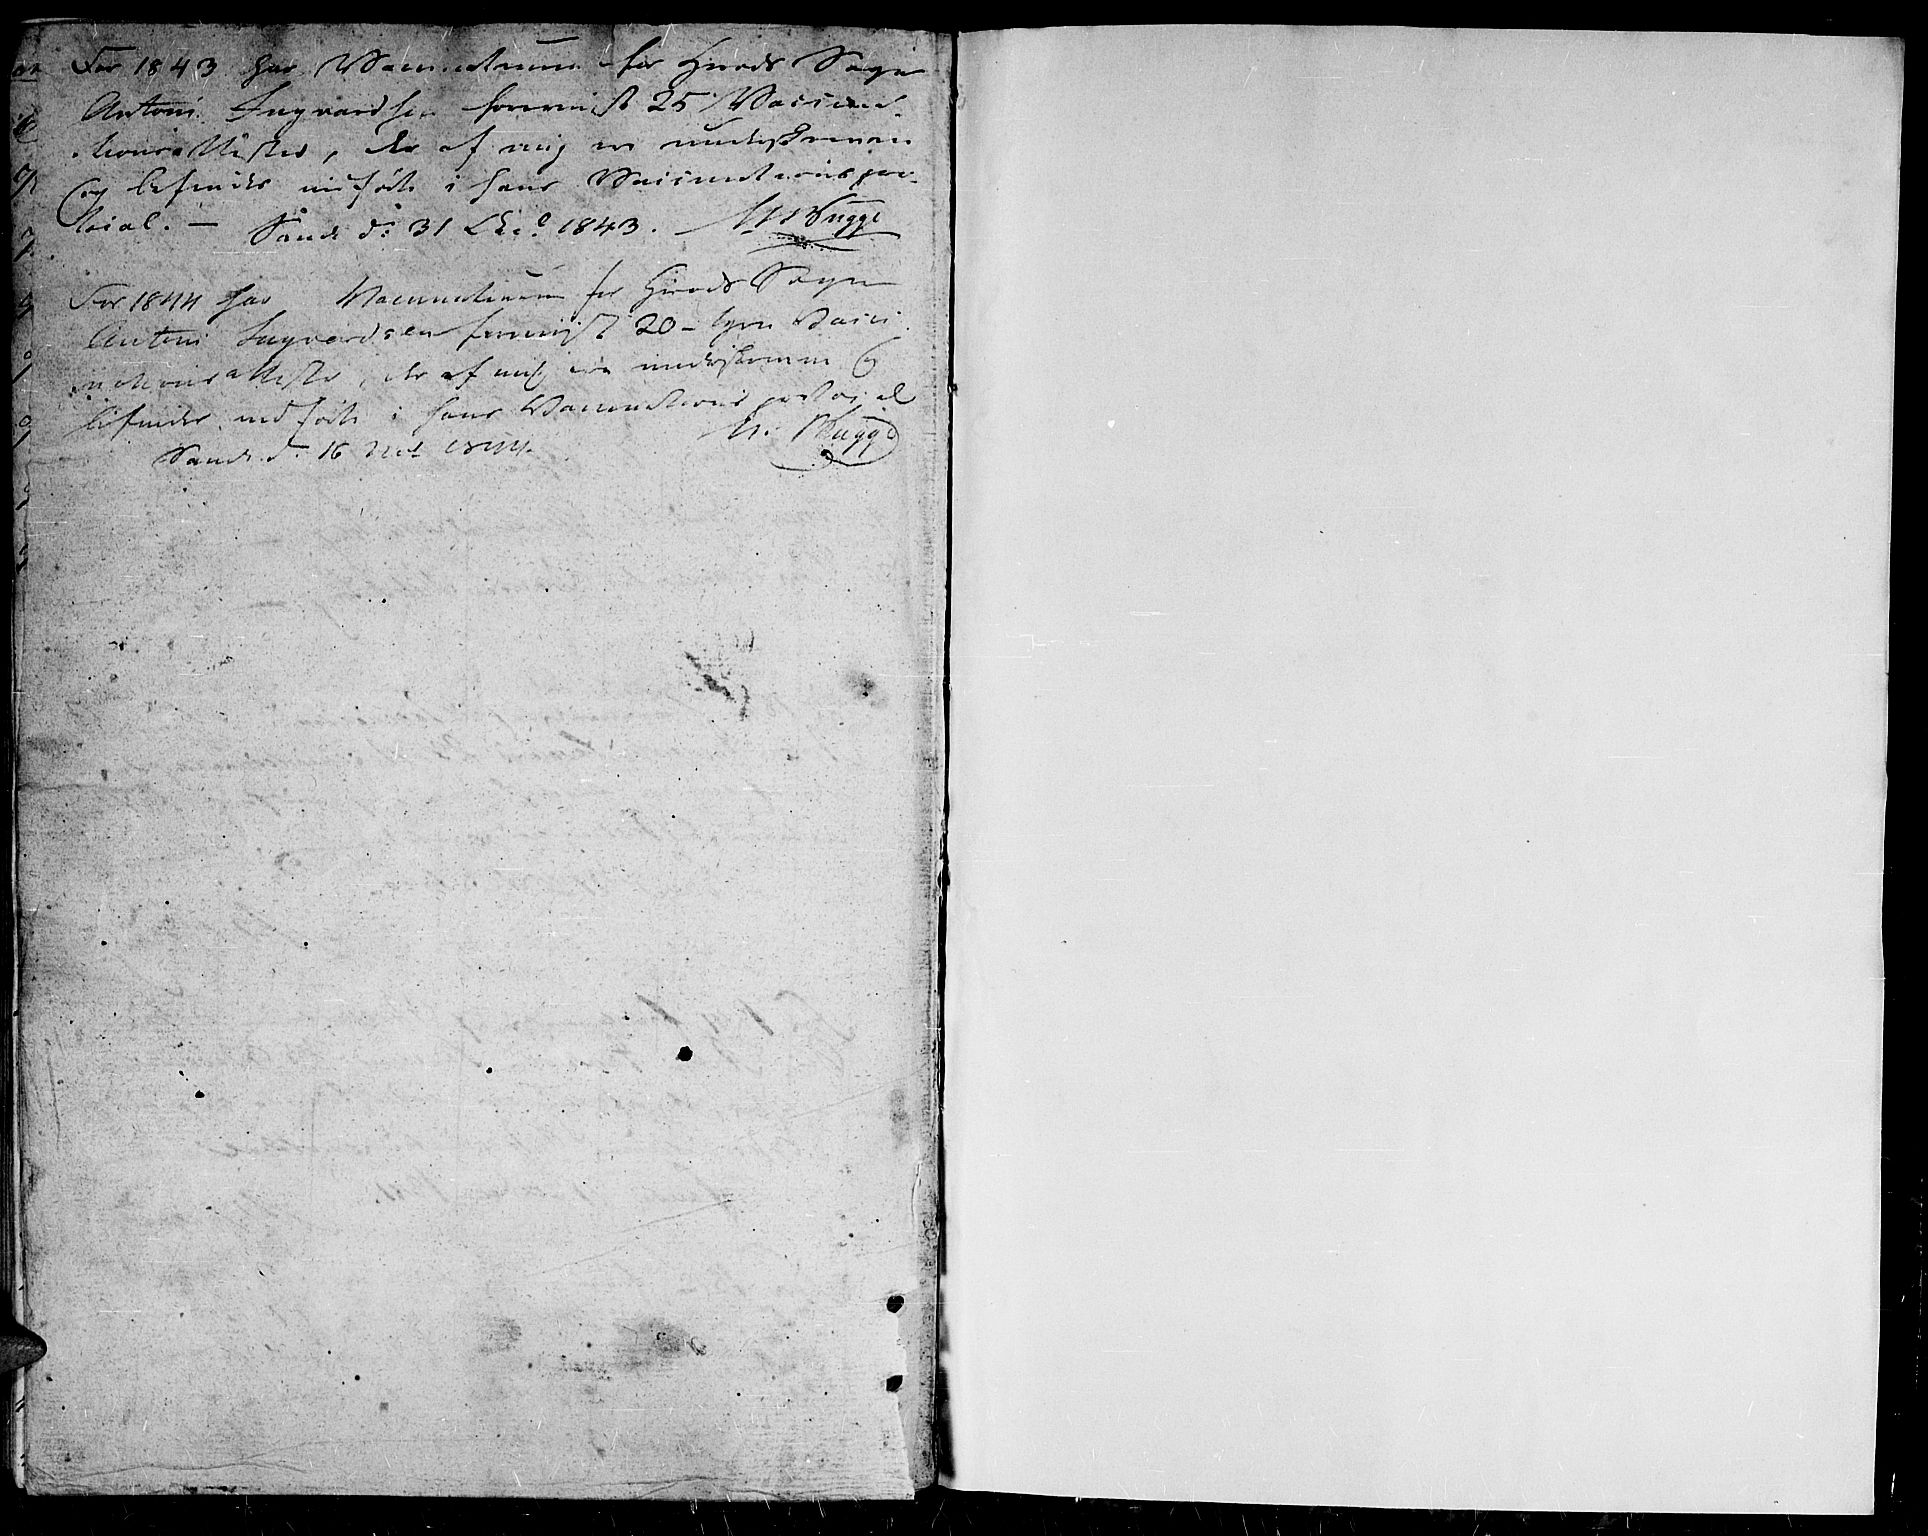 For 1843 har Vaccinateuren for Hirods Sogn
Antoni Ingvardsen foreviist 25 Vaccina-
tionsattester, der af mig ere underskrevne
og befindes indførte i hans Vaccinationspro-
tocol. — Sande d. 31 Dec. 1843. Bugge
For 1844 har Vaccinateuren for Hirods Sogn
Antoni Ingvardsen foreviist 20 Vacci
nationsattester, der af mig ere underskrevne og
befindes indførte i hans Vaccinationsprotocol
Sande d. 16 1844. Bugge